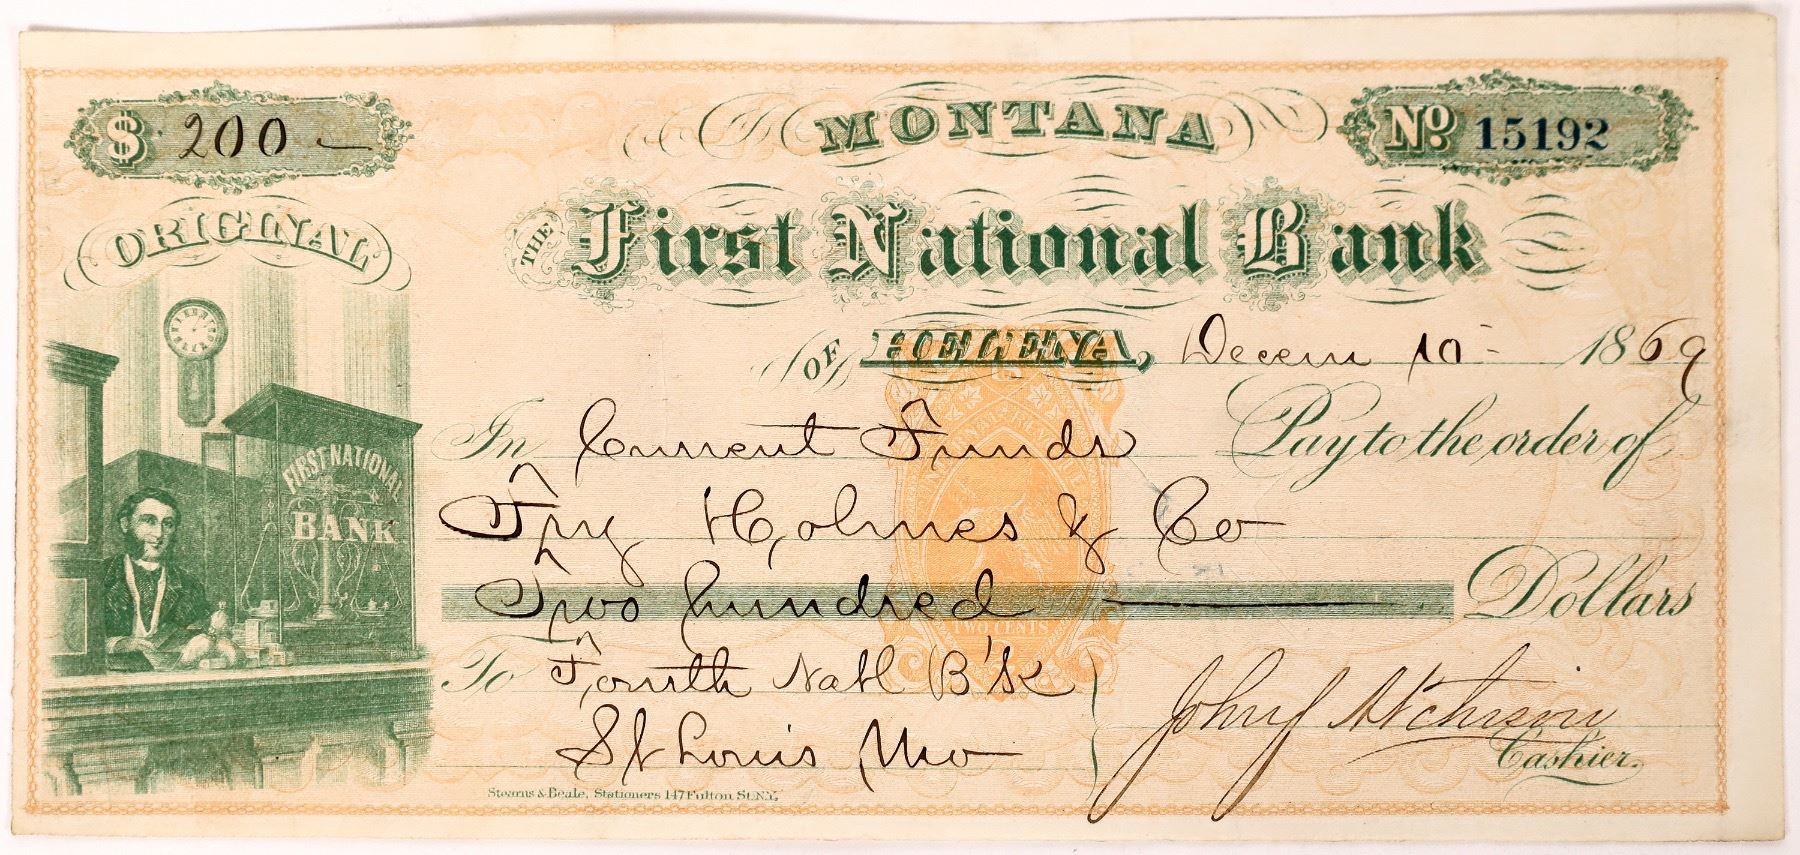 $ 200 –
MONTANA
Nº 15192
ORIGINAL
THE First National Bank
OF HELENA, Decem 10 - 1869
FIRST NATIONAL
BANK
In Current Funds Pay to the order of
Holmes & Co
Two hundred Dollars
TWO CENTS
To Fourth Natl B'k
St Louis Mo
John
Cashier.
Stearns & Beale, Stationers 147 Fulton St. N.Y.